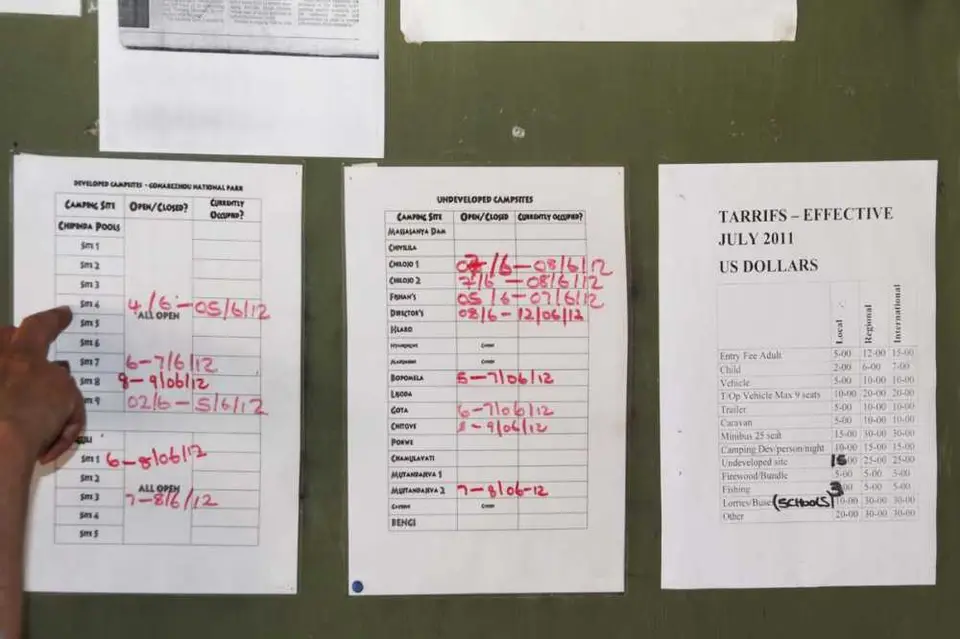 DEVELOPED CAMPSITES - GONAREZHOU NATIONAL PARK
CAMPING SITE OPEN/CLOSED? CURRENTLY OCCUPIED?
CHIPINDA POOLS
SITE 1
SITE 2
SITE 3
SITE 4 4/6 - 05/6/12
ALL OPEN
SITE 5
SITE 6
SITE 7 6-7/6/12
SITE 8 8-9/06/12
SITE 9 02/6-5/6/12
SITE 1 6-8/06/12
SITE 2
ALL OPEN
SITE 3 7-8/6/12
SITE 4
SITE 5
UNDEVELOPED CAMPSITES
CAMPING SITE OPEN/CLOSED CURRENTLY OCCUPIED?
MASSASANYA DAM
CHIVILILA
CHILOJO 1 07/6-08/6/12
CHILOJO 2 7/6-08/6/12
FISHAN'S 05/6-07/6/12
DIRECTOR'S 08/6-12/06/12
HLARO
BOPOMELA 5-7/06/12
LISODA
GOTA 6-7/06/12
CHITOVE -9/06/12
POKWE
CHAMULAVATI
MUTANDAHVA 1
MUTANDAHVA 2 7-8/06-12
BENGI
TARRIFS – EFFECTIVE
JULY 2011
US DOLLARS
Local Regional International
Entry Fee Adult 5-00 12-00 15-00
Child 2-00 6-00 7-00
Vehicle 5-00 10-00 10-00
T/Op Vehicle Max 9 seats 10-00 20-00 20-00
Trailer 5-00 10-00 10-00
Caravan 5-00 10-00 10-00
Minibus 25 seat 15-00 30-00 30-00
Camping Dev/person/night 10-00 15-00 15-00
Undeveloped site 15 00 25-00 25-00
Firewood/Bundle 5-00 5-00 5-00
Fishing 3 00 5-00 5-00
Lorries/Buses (SCHOOLS) 10-00 30-00 30-00
Other 20-00 30-00 30-00